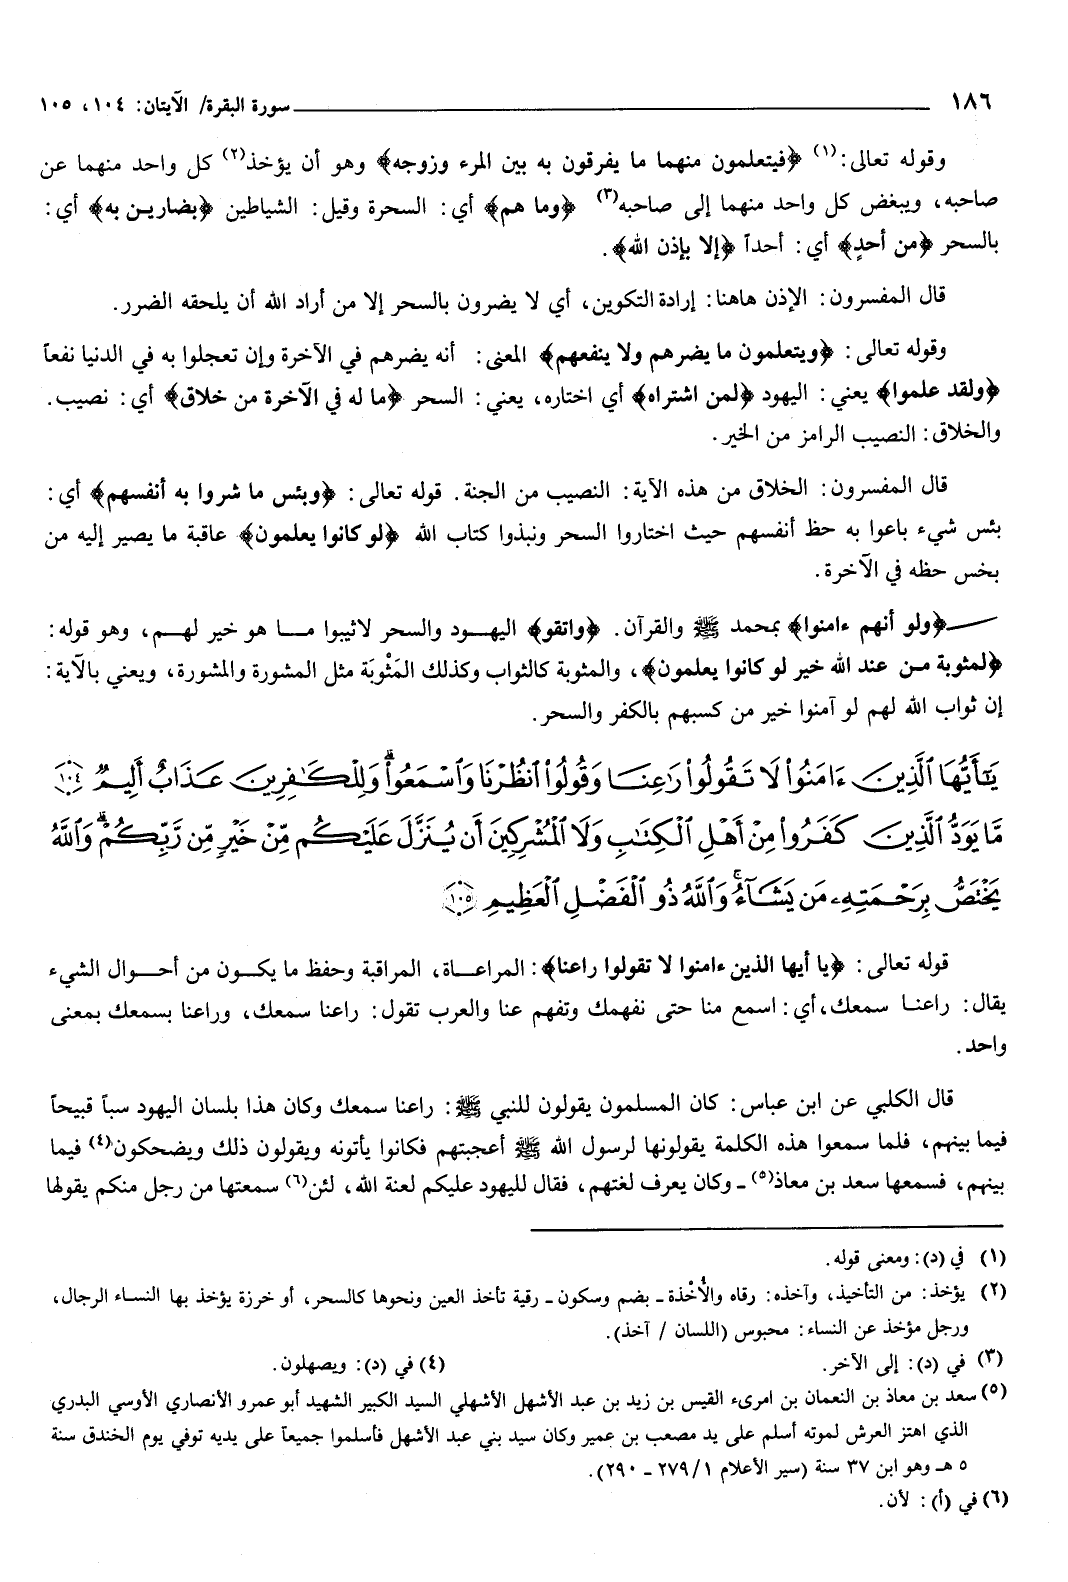 ١٨٦ ــــــــــ سورة البقرة/ الآيتان: ١٠٤، ١٠٥
وقوله تعالى:(١) ﴿فيتعلمون منهما ما يفرقون به بين المرء وزوجه﴾ وهو أن يؤخذ(٢) كل واحد منهما عن
صاحبه، ويبغض كل واحد منهما إلى صاحبه(٣) ﴿وما هم﴾ أي: السحرة وقيل: الشياطين ﴿بضارين به﴾ أي:
بالسحر ﴿من أحدٍ﴾ أي: أحداً ﴿إلا بإذن الله﴾.
قال المفسرون: الإذن هاهنا: إرادة التكوين، أي لا يضرون بالسحر إلا من أراد الله أن يلحقه الضرر.
وقوله تعالى: ﴿ويتعلمون ما يضرهم ولا ينفعهم﴾ المعنى: أنه يضرهم في الآخرة وإن تعجلوا به في الدنيا نفعاً
﴿ولقد علموا﴾ يعني: اليهود ﴿لمن اشتراه﴾ أي اختاره، يعني: السحر ﴿ما له في الآخرة من خلاق﴾ أي: نصيب.
والخلاق: النصيب الرامز من الخير.
قال المفسرون: الخلاق من هذه الآية: النصيب من الجنة. قوله تعالى: ﴿وبئس ما شروا به أنفسهم﴾ أي:
بئس شيء باعوا به حظ أنفسهم حيث اختاروا السحر ونبذوا كتاب الله ﴿لو كانوا يعلمون﴾ عاقبة ما يصير إليه من
بخس حظه في الآخرة.
﴿ولو أنهم ءامنوا﴾ بمحمد ﷺ والقرآن. ﴿واتقو﴾ اليهود والسحر لاثيبوا ما هو خير لهم، وهو قوله:
﴿لمثوبة من عند الله خير لو كانوا يعلمون﴾، والمثوبة كالثواب وكذلك المَثْوبَة مثل المشورة والمشورة، ويعني بالآية:
إن ثواب الله لهم لو آمنوا خير من كسبهم بالكفر والسحر.
يَٰٓأَيُّهَا ٱلَّذِينَ ءَامَنُوا۟ لَا تَقُولُوا۟ رَٰعِنَا وَقُولُوا۟ ٱنظُرْنَا وَٱسْمَعُوا۟ ۗ وَلِلْكَٰفِرِينَ عَذَابٌ أَلِيمٌ ١٠٤
مَّا يَوَدُّ ٱلَّذِينَ كَفَرُوا۟ مِنْ أَهْلِ ٱلْكِتَٰبِ وَلَا ٱلْمُشْرِكِينَ أَن يُنَزَّلَ عَلَيْكُم مِّنْ خَيْرٍ مِّن رَّبِّكُمْ ۗ وَٱللَّهُ
يَخْتَصُّ بِرَحْمَتِهِۦ مَن يَشَآءُ ۚ وَٱللَّهُ ذُو ٱلْفَضْلِ ٱلْعَظِيمِ ١٠٥
قوله تعالى: ﴿يا أيها الذين ءامنوا لا تقولوا راعنا﴾: المراعاة، المراقبة وحفظ ما يكون من أحوال الشيء
يقال: راعنا سمعك، أي: اسمع منا حتى نفهمك وتفهم عنا والعرب تقول: راعنا سمعك، وراعنا بسمعك بمعنى
واحد.
قال الكلبي عن ابن عباس: كان المسلمون يقولون للنبي ﷺ: راعنا سمعك وكان هذا بلسان اليهود سباً قبيحاً
فيما بينهم، فلما سمعوا هذه الكلمة يقولونها لرسول الله ﷺ أعجبتهم فكانوا يأتونه ويقولون ذلك ويضحكون(٤) فيما
بينهم، فسمعها سعد بن معاذ(٥) ـ وكان يعرف لغتهم، فقال لليهود عليكم لعنة الله، لئن(٦) سمعتها من رجل منكم يقولها
(١) في (د): ومعنى قوله.
(٢) يؤخذ: من التأخيذ، وآخذه: رقاه والأُخْذة ـ بضم وسكون ـ رقية تأخذ العين ونحوها كالسحر، أو خرزة يؤخذ بها النساء الرجال،
ورجل مؤخذ عن النساء: محبوس (اللسان / آخذ).
(٣) في (د): إلى الآخر. (٤) في (د): ويصهلون.
(٥) سعد بن معاذ بن النعمان بن امرىء القيس بن زيد بن عبد الأشهل الأشهلي السيد الكبير الشهيد أبو عمرو الأنصاري الأوسي البدري
الذي اهتز العرش لموته أسلم على يد مصعب بن عمير وكان سيد بني عبد الأشهل فأسلموا جميعاً على يديه توفي يوم الخندق سنة
٥ هـ وهو ابن ٣٧ سنة (سير الأعلام ١/ ٢٧٩ ـ ٢٩٠).
(٦) في (أ): لأن.